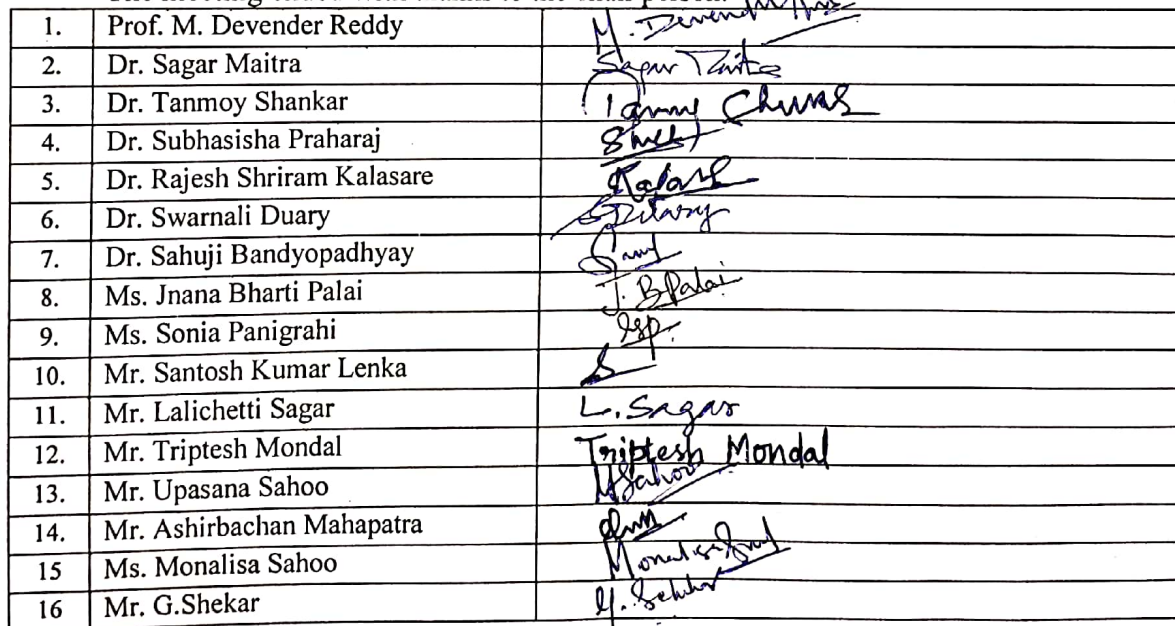 The meeting ended with thanks to the chair person.
1. Prof. M. Devender Reddy M. Devender
2. Dr. Sagar Maitra Sagar Maitra
3. Dr. Tanmoy Shankar Tanmoy
4. Dr. Subhasisha Praharaj
5. Dr. Rajesh Shriram Kalasare
6. Dr. Swarnali Duary SDuary
7. Dr. Sahuji Bandyopadhyay
8. Ms. Jnana Bharti Palai J. B Palai
9. Ms. Sonia Panigrahi
10. Mr. Santosh Kumar Lenka
11. Mr. Lalichetti Sagar L. Sagar
12. Mr. Triptesh Mondal Triptesh Mondal
13. Mr. Upasana Sahoo USahoo
14. Mr. Ashirbachan Mahapatra
15 Ms. Monalisa Sahoo Monalisa
16 Mr. G.Shekar